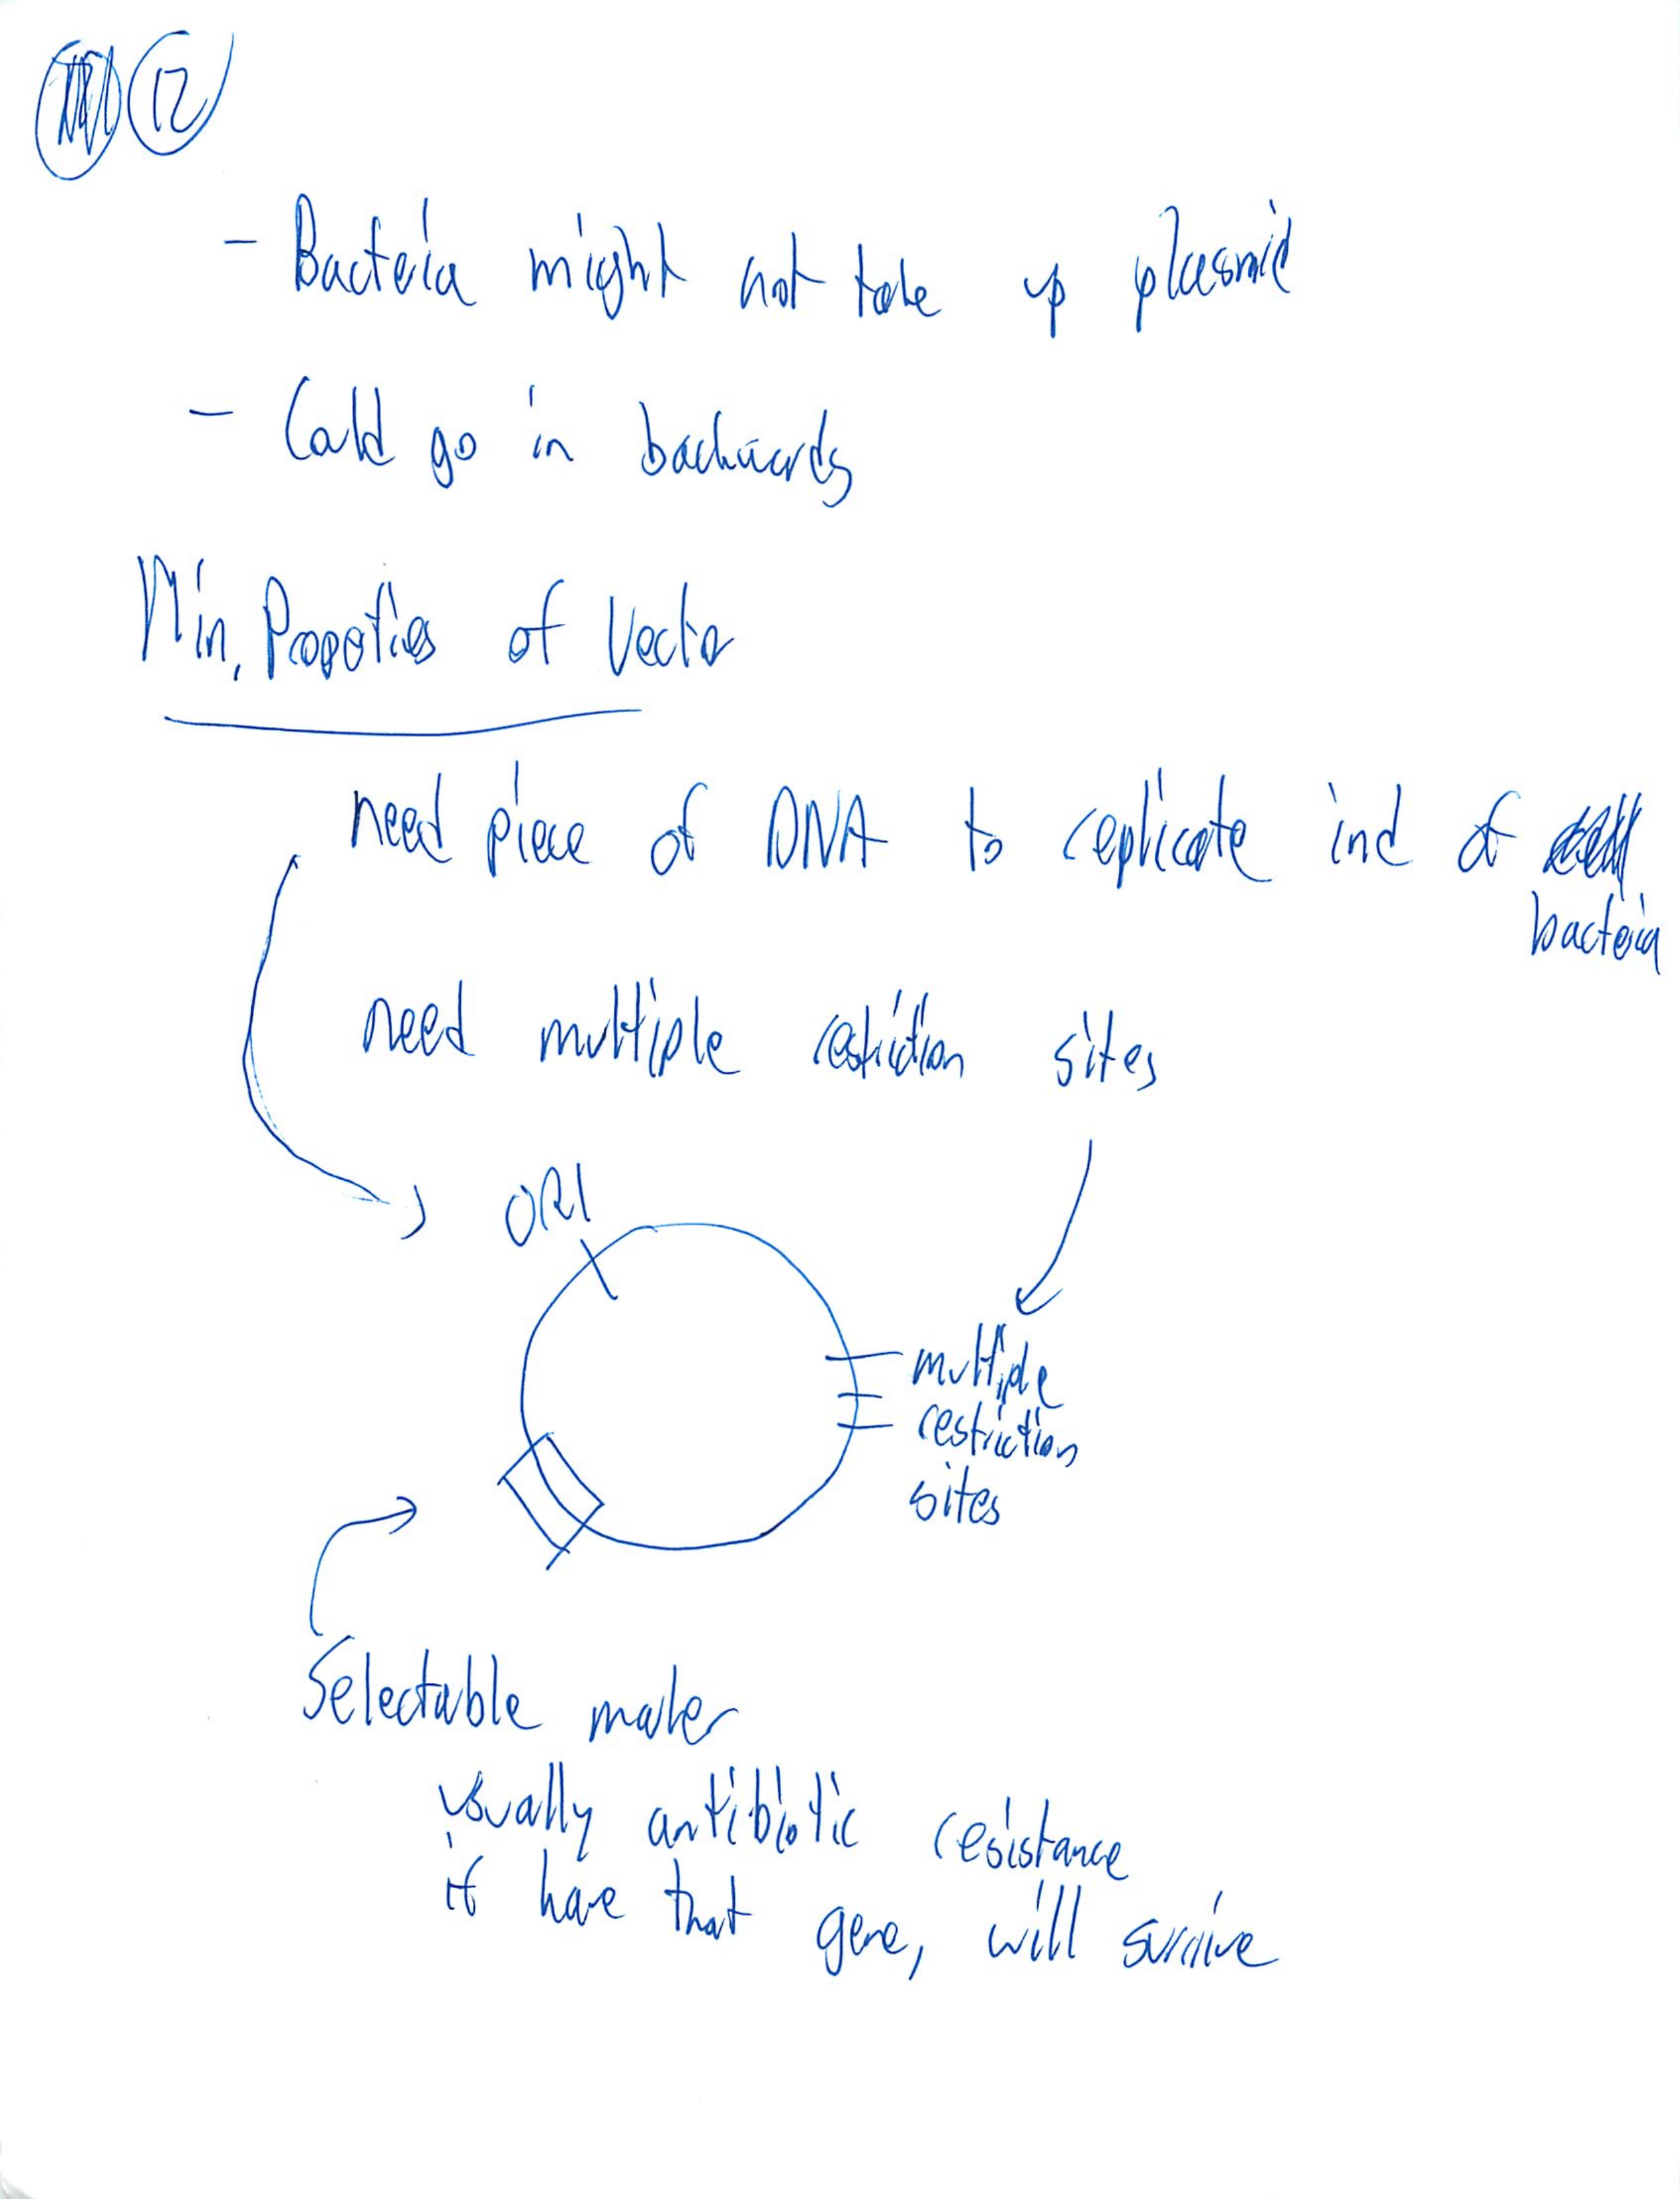 12
- Bacteria might not take up plasmid
- Could go in backwards
Min. Properties of Vector
need piece of DNA to replicate ind of
bacteria
need multiple restriction sites
ORI
multiple
restriction
sites
Selectable marker
usually antibiotic resistance
if have that gene, will survive